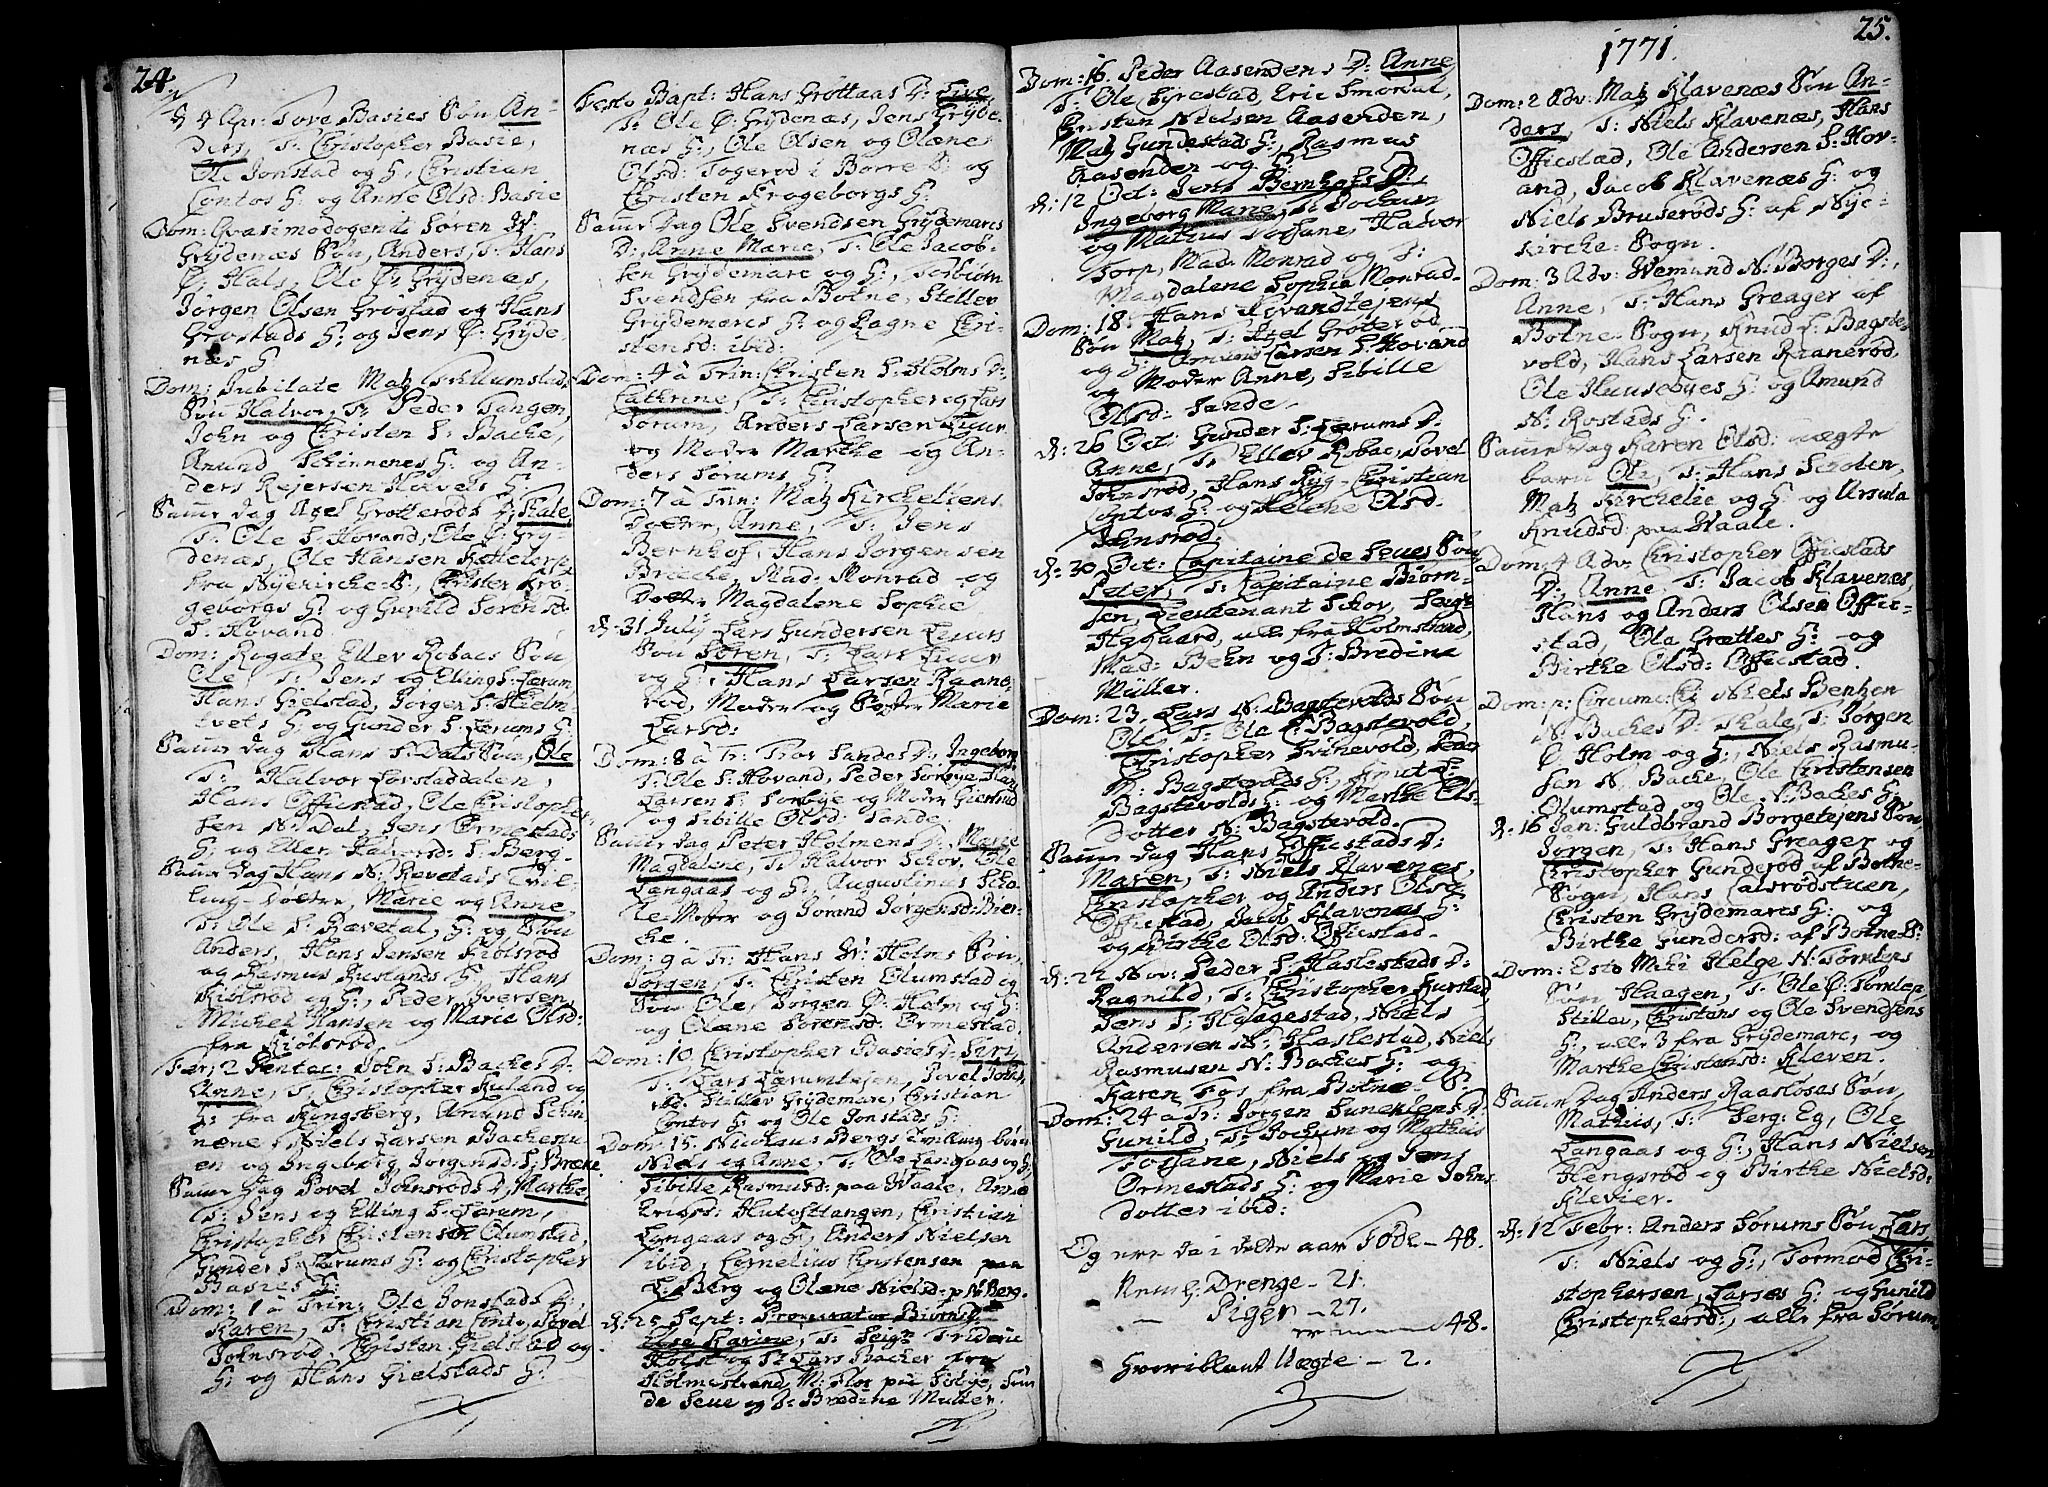 24.
d: 4 Apr: Tore Basies Søn An-
ders, T: Christopher Basie,
Ole Jonstad og H; Christian
Contos H: og Anne Olsd: Basie
Dom: Qvasimodogenit Søren N:
Grydenæs Søn, Anders, T: Hans
Ø: Hals, Ole Ø: Grydenæs,
Jørgen Olsen Grøstad og Hans
Grøstads H: og Jens Ø: Gryde-
næs H:
Dom: Jubilate Matz Ollumstad
Søn Halvor, T: Peder Tangen,
John og Christen S: Bache,
Amund Schinnenes H: og An-
ders Rejersen Holvets H:
Samme Dag Axel Grotterøds D; Kale,
T: Ole S: Hovand, Ole Ø: Gry-
denæs, Ole Hansen
fra Nyekirche S:, Christen Kro-
geborgs H: og Gunild Sørensd:
S: Hovand.
Dom: Rogate Ellev Robacs Søn
Ole, T: Jens og Elling S: Lærum,
Hans Gielstad, Jørgen S: Hielm-
tvets H: og Gunder S: Lærums H:
Samme Dag Hans S: Dals Søn, Ole
T: Halvor Lørstaddalen,
Hans Officstad, Ole Christopher-
sen N: Dal, Jens Ormestads
H; og Ellen Halvorsd: S: Berg-
Samme Dag Hans N: Rævetals Tvil-
ling-Døttre, Marie og Anne
T: Ole S: Rævetal, H: og Søn
Anders, Hans Jensen Kiølsrød
og Rasmus Hustands H: Hans
Kiølsrød og H:, Peder Iversen,
Michel Hansen og Marie Olsd:
fra Kiølsrød.
Fer: 2 Pentec: John S: Baches D:
Anne, T: Christopher Ruland og
H: fra Kongsberg, Amund Schin-
nene, Niels Larsen Bachestu-
en og Ingeborg Jørgensd: S: Bræke
Samme Dag Povel Johnsrøds D; Marthe,
T: Jens og Elling S: Lærum,
Christopher Christensen Olumstad,
Gunder S: Lærums H: og Christopher
Basies H:
Dom: 1 a Trin: Ole Jonstads D:,
Karen, T: Christian Conto, Povel
Johnsrød, Christen Gielstad og
H; og Hans Gielstads H:
Festo Bapt: Hans Grottaas D: Sive
T: Ole Ø: Grydenæs, Jens Gryde-
næs H:, Ole Olsen og Olæne
Olsd: Fogerød i Borre S: og
Christen Krogeborgs H:
Samme Dag Ole Svendsen Grydemares
D; Anne Marie, T: Ole Jacob-
sen Grydemare og H:, Torbiørn
Svendsen fra Botne, Stillev
Grydemares H: og Ragne Chri-
stensd: ibid:
Dom: 4 a Trin: Christen S: Holms D:
Cathrine, T: Christopher og Lars
Sørum, Anders Larsen Liuur
og Moder Marthe og An-
ders Sørums H:
Dom: 7 a Trin: Matz Kircheliens
Dotter, Anne, T: Jens
Bernhof, Hans Jørgensen
Bræche, Mad: Monrad og
Dotter Magdalene Sophie.
d: 31 July Lars Gundersen Liuurs
Søn Søren, T: Lars Liuur
og H: Hans Larsen Raane-
rød, Moder og Søster Marie
Larsd:
Dom: 8 a Tr: Tror Sandes D: Ingeborg
T: Ole S: Hovand, Peder Sørbye, Hans
Larsen S: Sørbye og Moder Giertrud
og Sibille Olsd: Sande.
Samme Dag Peter Holmens D:, Marie
Magdalene, T: Halvor Schov, Ole
Langaas og H:, Augustinus Scho-
le-Mester og Jørand Jørgensd: Bier-
che.
Dom: 9 a Tr: Hans N: Holms Søn,
Jørgen, T: Christen Olumstad og
Søn Ole, Jørgen Ø: Holm og H:
og Olæne Sørensd: Ormestad.
Dom: 10 Christopher Basies D: Siri
T: Lars Lærumtejen, Povel Johns-
rød, Stillev Grydemare, Christian
Contos H: og Ole Jonstads H:
Dom: 15. Nicolaus Bergs Tvilling børn
Niels og Anne, T: Ole Langaas og H;
Sibille Rasmusd: paa Vaale, Anne
Ericsd: Hutvettangen, Christian
Langaas og H:, Anders Nielsen
ibid, Cornelius Christensen paa
S: Berg og Olæne Nielsd: p: N: Berg.
d: 25 Sept: Procurator Biørns D:
Else Karine, T: Seigr Frideric
Holst og Lars Backer fra
Holmestrand, M: Flor paa Foskye,
de Seue og T: Bredine Müller.
Dom: 16. Peder Aasendens D: Anne,
T: Ole Fyrestad, Eric Smørdal,
Christen Nielsen Aasenden,
Matz Gundestads H:, Rasmus
Aasenden og H:
d: 12 Oct: Jens Bernhofs D:
Ingeborg Marie, T: Jochum
og Mathis Fossane, Halvor
Torp, Mad: Monrad og T:
Magdalene Sophia Monrad-
Dom: 18: Hans Hovandtejens
Søn Matz, T: Axel Grøterød
og H: Amund Larsen S: Hovand
og Moder Anne, Sibille
Olsd: Sande-
d: 26 Oct: Gunder S: Lærums D:
Anne, T: Ellev Robac, Povel
Johnsrød, Hans Ryg- Christian
Contos H: og Helene Olsd:
Johnsrød:
d: 30 Oct: Capitaine de Seues Søn
Peter, T: Capitaine Biørn-
sen, Lieutenant Schov, Seigr
Hegaard, alle fra Holmstrand,
Mad: Behn og T: Bredine
Müller.
Dom: 23. Lars N: Bagstevolds Søn
Ole, T: Ole S: Bagstevold,
Christopher Svinevold, Peder
N: Bagstevolds H:, Knut S:
Bagstevolds H: og Marthe Ols-
dotter N: Bagstevold.
Samme Dag Hans Officstads D:
Maren, T: Niels Klavenæs,
Christopher og Anders Olsen
Officstad, Jacob Klavenæs H:
og Birthe Olsd: Officstad.
d: 22 Nov: Peder S: Haslestads D:
Ragnild, T: Christopher Hurstad,
Jens S: Haagestad, Niels
Andersen N: Haslestad, Niels
Rasmusen N: Baches H: og
Karen Fos fra Botne S:
Dom: 24 a Tr: Jørgen Suneklens D:
Gunild, T: Jochum og Mathis
Fossane, Niels og Jens
Ormestads H: og Marie Johns-
dotter ibid:
Og ere da i dette aar Føde - 48.
Neml: Drenge - 21.
- Piger - 27.
er 48.
Hvoriblant Uægte - 2.
1771.
25.
Dom: 2 Adv: Matz Klavenæs Søn An-
ders, T: Niels Klavenæs, Hans
Officstad, Ole Andersen S: Hov-
and, Jacob Klavenæs H: og
Niels Bruserøds H: af Nye-
kirche-Sogn.
Dom: 3 Adv: Wemund N: Borges D:,
Anne, T: Hans Greager af
Botne-Sogn, Knud S: Bagste-
vold, Hans Larsen Raanerød,
Ole Huusebyes H: og Amund
N: Rostads H:
Samme Dag Karen Olsd: uægte
barn Ole, T: Hans Scholen,
Matz Kirchelie og H: og Ursula
Knudsd: paa Vaale.
Dom: 4 Adv: Christopher Officstads
D:, Anne, T: Jacob Klavenæs,
Hans og Anders Olsen Offic-
stad, Ola Grættes H: og
Birthe Olsd: Officstad.
Dom: p: Circumc: Niels Bentzen
N: Baches D: Kale, T: Jørgen
Ø: Holm og H:, Niels Rasmu-
sen N: Bache, Ole Christensen
Olumstad og Ole N: Baches H:
d: 16 Jan: Guldbrand Borgetejens Søn,
Jørgen, T: Hans Greager og
Christopher Gunderød af Botne-
Sogn, Hans Calsrødstuen,
Christen Grydemares H: og
Birthe Gundersd: af Botne S:
Dom: Esto Mihi Helge N: Tømleps
Søn Haagen, T: Ole Ø: Tømlep,
Stillev, Christens og Ole Svendsens
H:, alle 3 fra Grydemare, og
Marthe Christensd: Kleven.
Samme Dag Anders Raasløsas Søn,
Mathis, T: Serg: Eg, Ole
Langaas og H:, Hans Nielsen
Hengsrød og Birthe Nielsd:
Klevier.
d: 12 Febr: Anders Sørums Søn Lars
T: Niels og H:, Tormod Chri-
stophersen, Larses H: og Gunild
Christophersd:, alle fra Sørum.